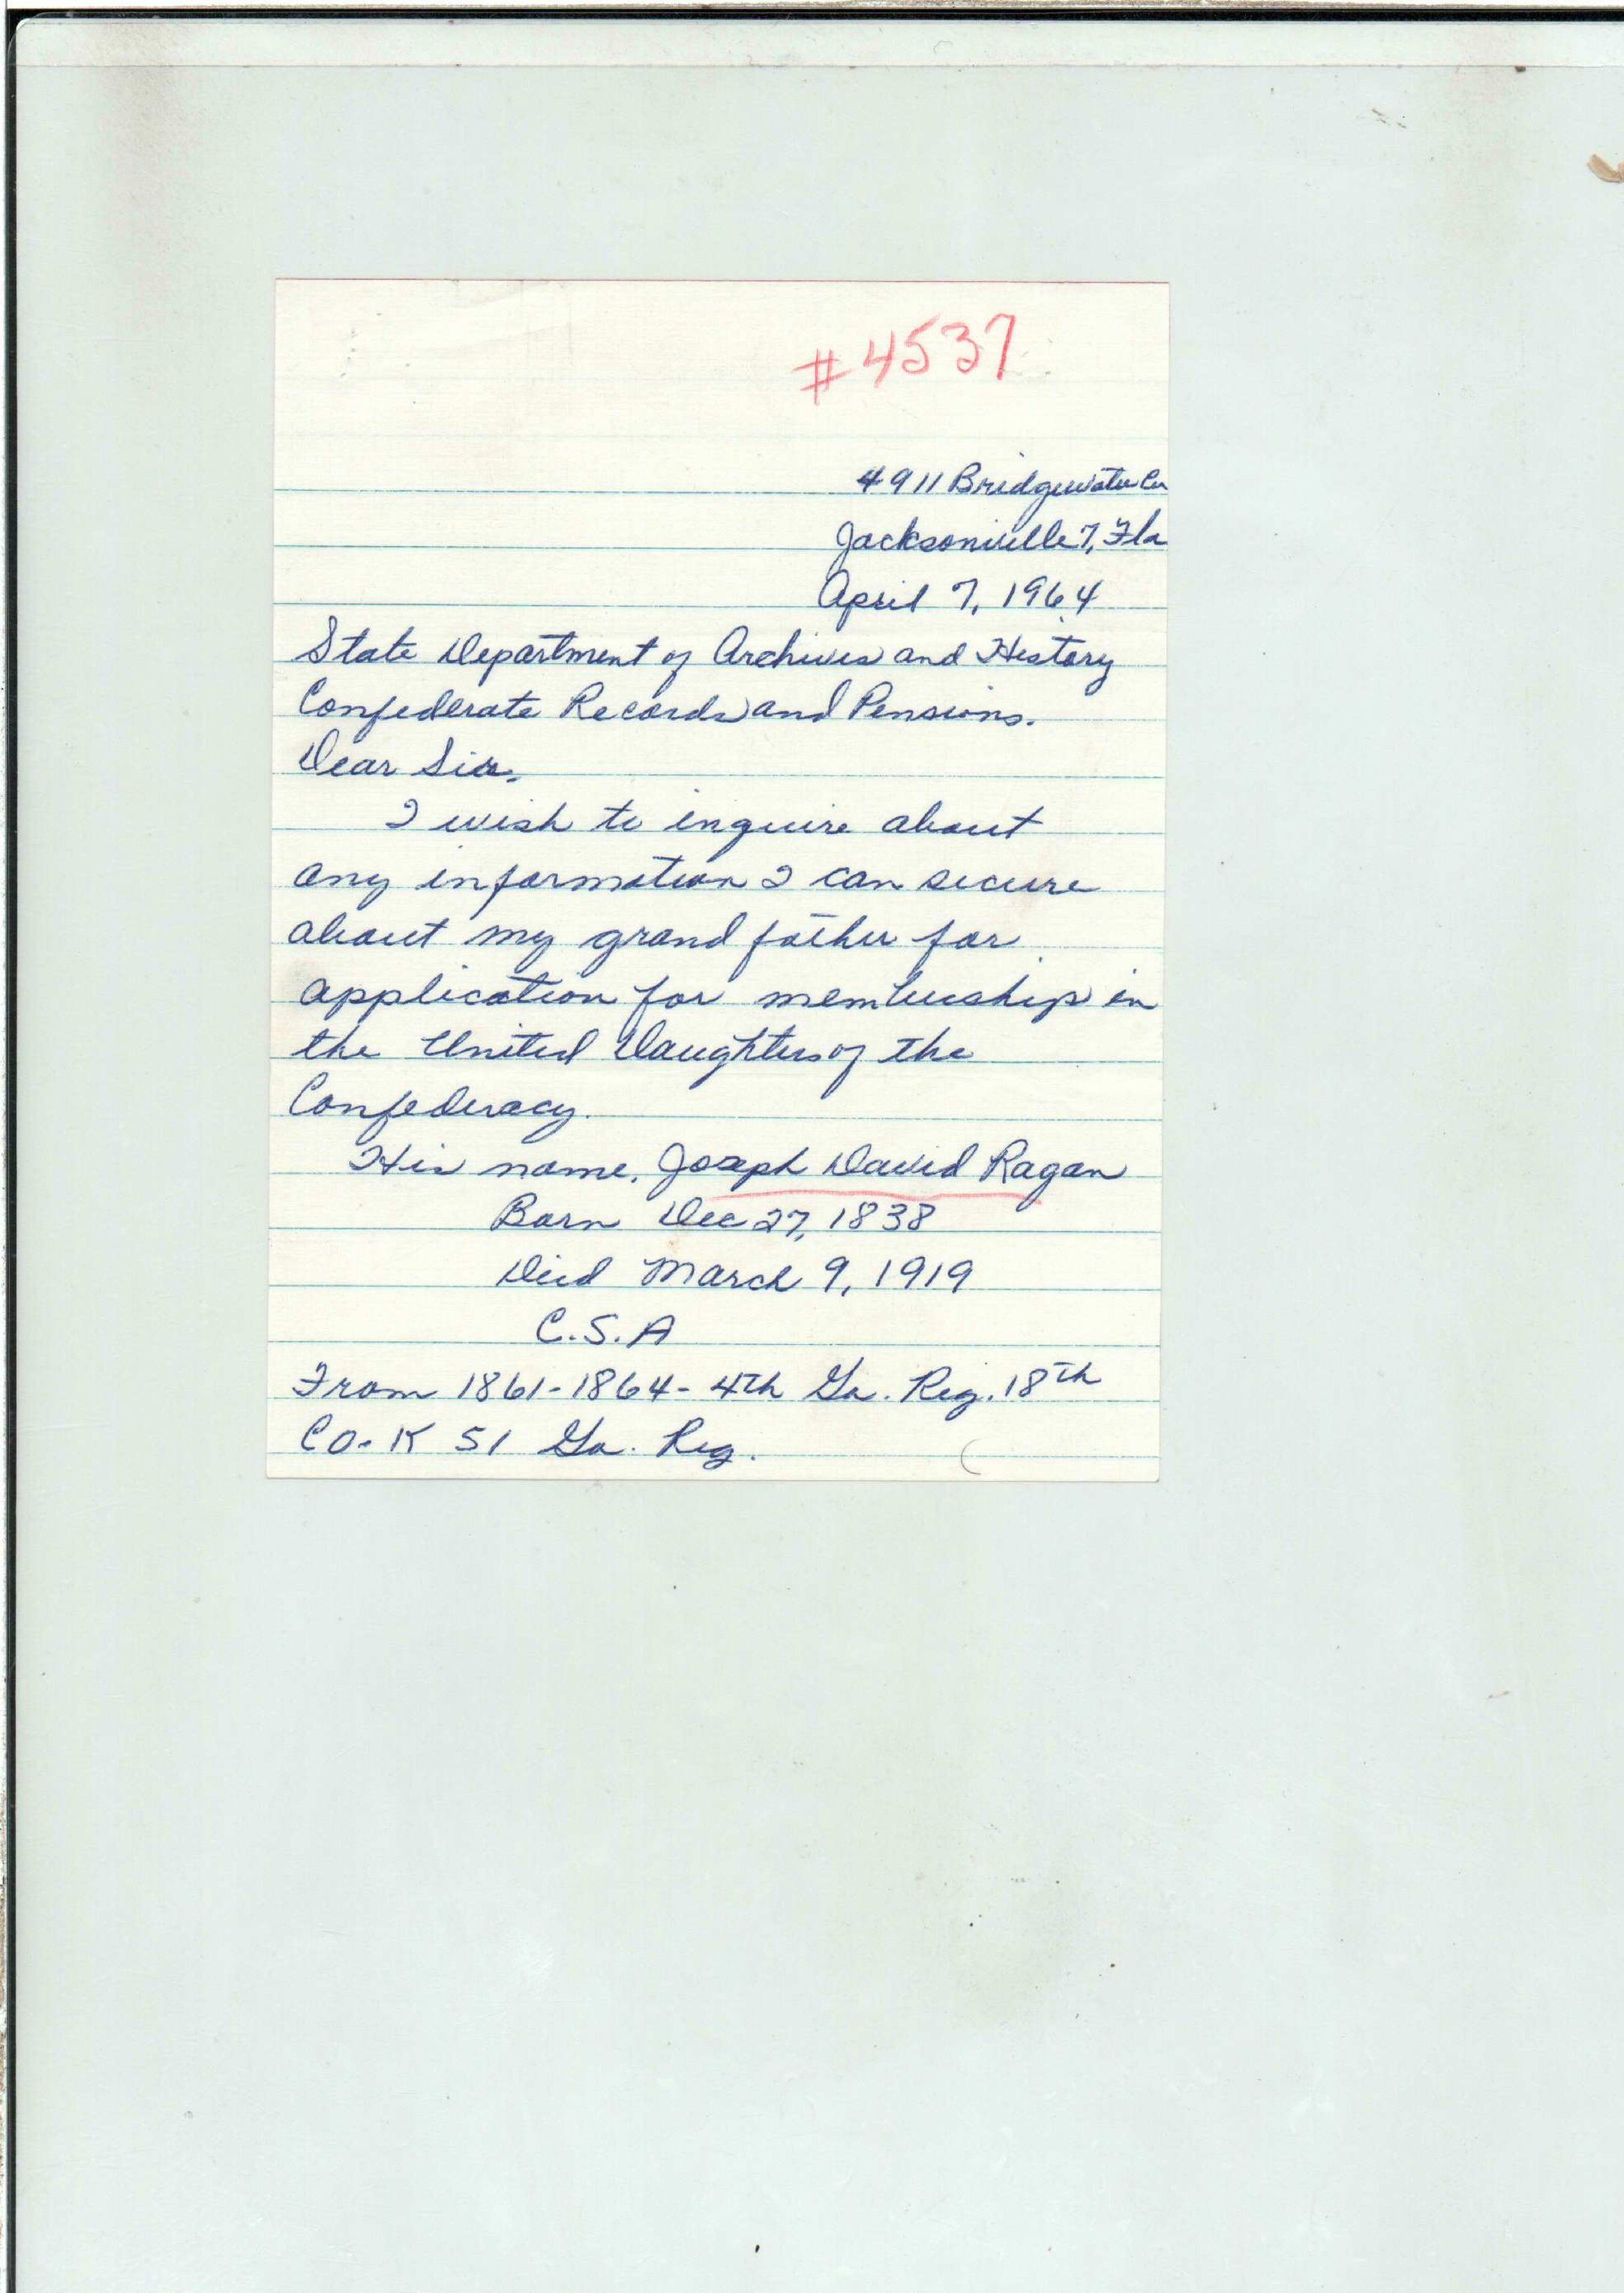 #4537
4911 Bridgewater Cr
Jacksonville 7, Fla
April 7, 1964
State Department of Archives and History
Confederate Records and Pensions.
Dear Sir.
I wish to inquire about
any information I can secure
about my grand father for
application for membership in
the United Daughters of the
Confederacy.
His name, Joseph David Ragan
Born Dec 27, 1838
Died March 9, 1919
C.S.A
From 1861-1864- 4th Ga. Reg. 18th
CO. K 51 Ga. Reg.